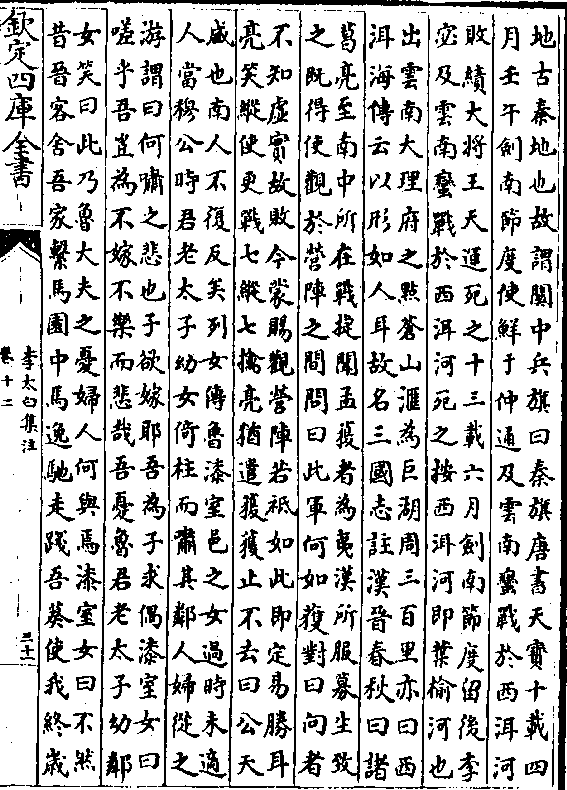 地古秦地也故謂關中兵旗曰秦旗唐書天寶十載四
月壬午劍南節度使鮮于仲通及雲南蠻戰於西洱河
敗績大将王天運死之十三載六月劍南節度留後李
宓及雲南蠻戰於西洱河死之按西洱河即葉榆河也
出雲南大理府之點蒼山滙為巨湖周三百里亦曰西
洱海傳云以形如人耳故名三國志註漢晉春秋曰諸
葛亮至南中所在戰捷聞孟獲者為夷漢所服募生致
之既得使觀於營陣之間問曰此軍何如獲對曰向者
不知虛實故敗今蒙賜觀營陣若祗如此即定易勝耳
亮笑縱使更戰七縱七擒亮猶遣獲獲止不去曰公天
威也南人不復反矣列女傳魯漆室邑之女過時未適
人當穆公時君老太子幼女倚柱而嘯其鄰人婦從之
游謂曰何嘯之悲也子欲嫁耶吾為子求偶漆室女曰
嗟乎吾豈為不嫁不樂而悲哉吾憂魯君老太子幼鄰
女笑曰此乃魯大夫之憂婦人何與焉漆室女曰不然
昔晉客舍吾家繫馬園中馬逸馳走踐吾葵使我終歲
欽定四庫全書
李太白集注
卷十二
三十一